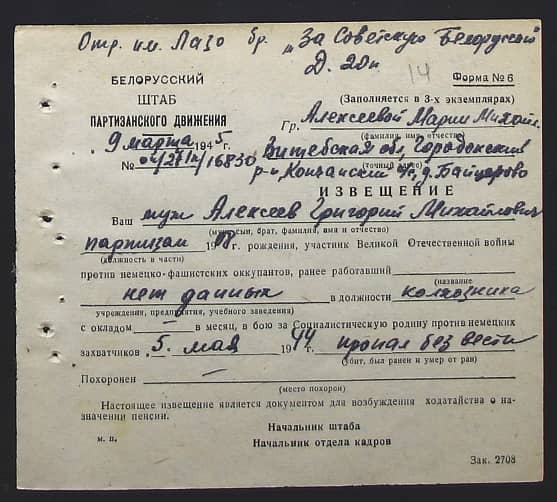 Отр. им. Лазо бр. "За Советскую Белоруссию"
Д. 20п
14
БЕЛОРУССКИЙ
ШТАБ
ПАРТИЗАНСКОГО ДВИЖЕНИЯ
9 марта 1945 г.
№ 04/27/п/16830
Форма № 6
(Заполняется в 3-х экземплярах)
Гр. Алексеевой Марии Михайл.
(фамилия, имя, отчество)
Витебская обл, Городокский
(точный адрес)
р-н, с/с, д. Байдарово
ИЗВЕЩЕНИЕ
Ваш муж Алексеев Григорий Михайлович
(муж, сын, брат, фамилия, имя и отчество)
партизан 19 г. рождения, участник Великой Отечественной войны
(должность в части)
против немецко-фашистских оккупантов, ранее работавший
(название
нет данных в должности колхозника
учреждения, предприятия, учебного заведения)
с окладом — в месяц, в бою за Социалистическую родину против немецких
захватчиков 5. мая 1944 г. пропал без вести
(убит, был ранен и умер от ран)
Похоронен —
(место похорон)
Настоящее извещение является документом для возбуждения ходатайства о на-
значении пенсии.
Начальник штаба
м. п.
Начальник отдела кадров
Зак. 2708